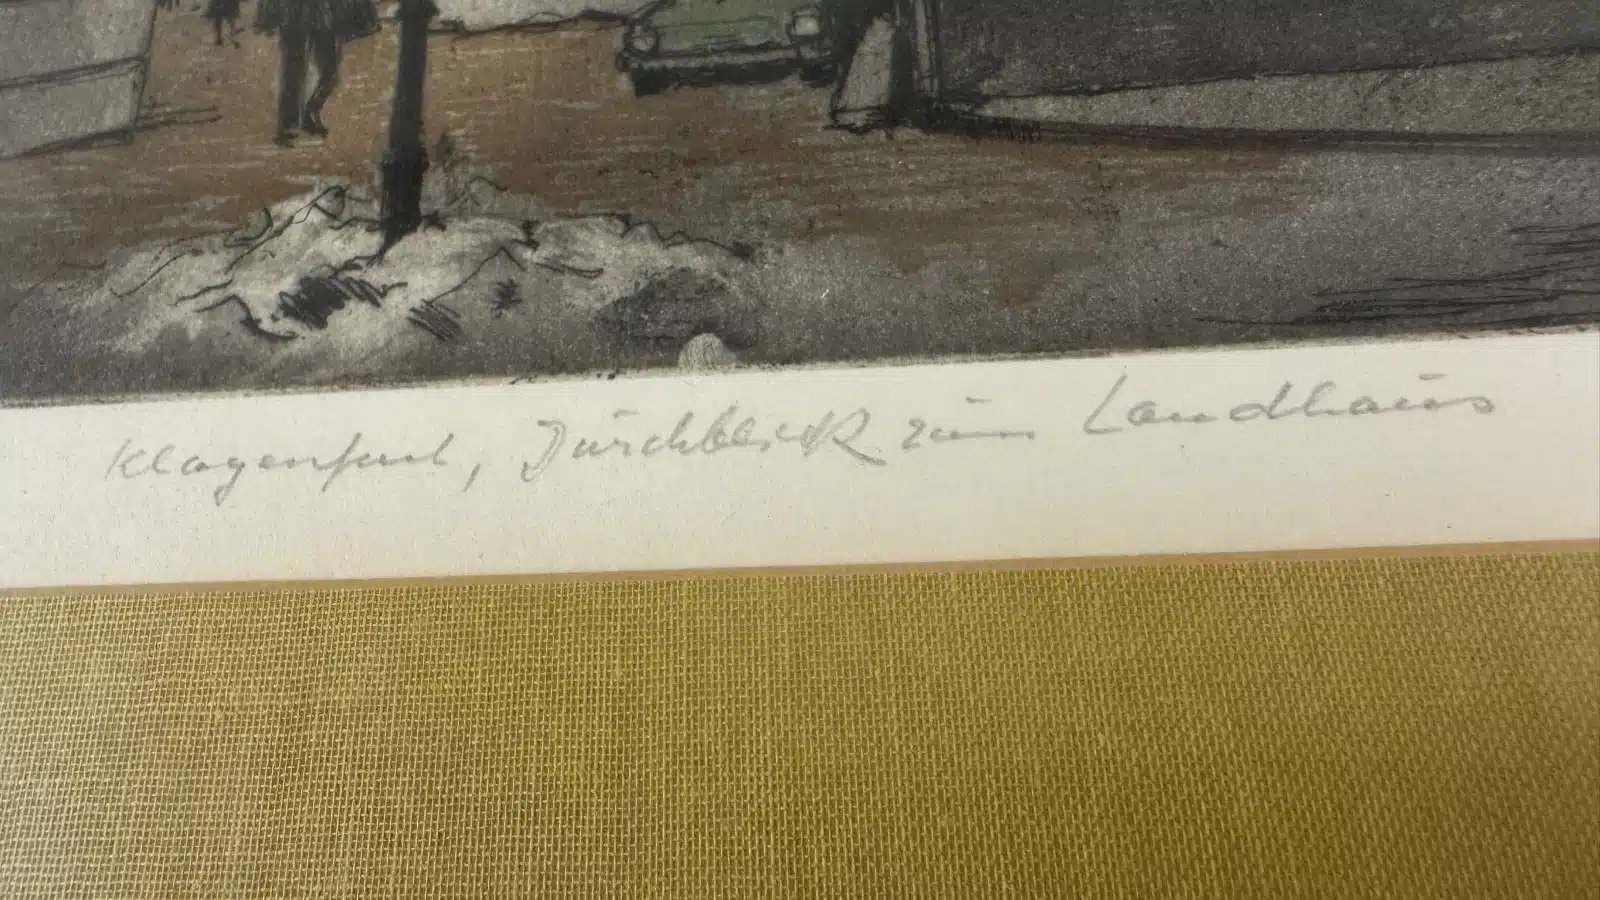 Klagenfurt, Durchblick zum Landhaus